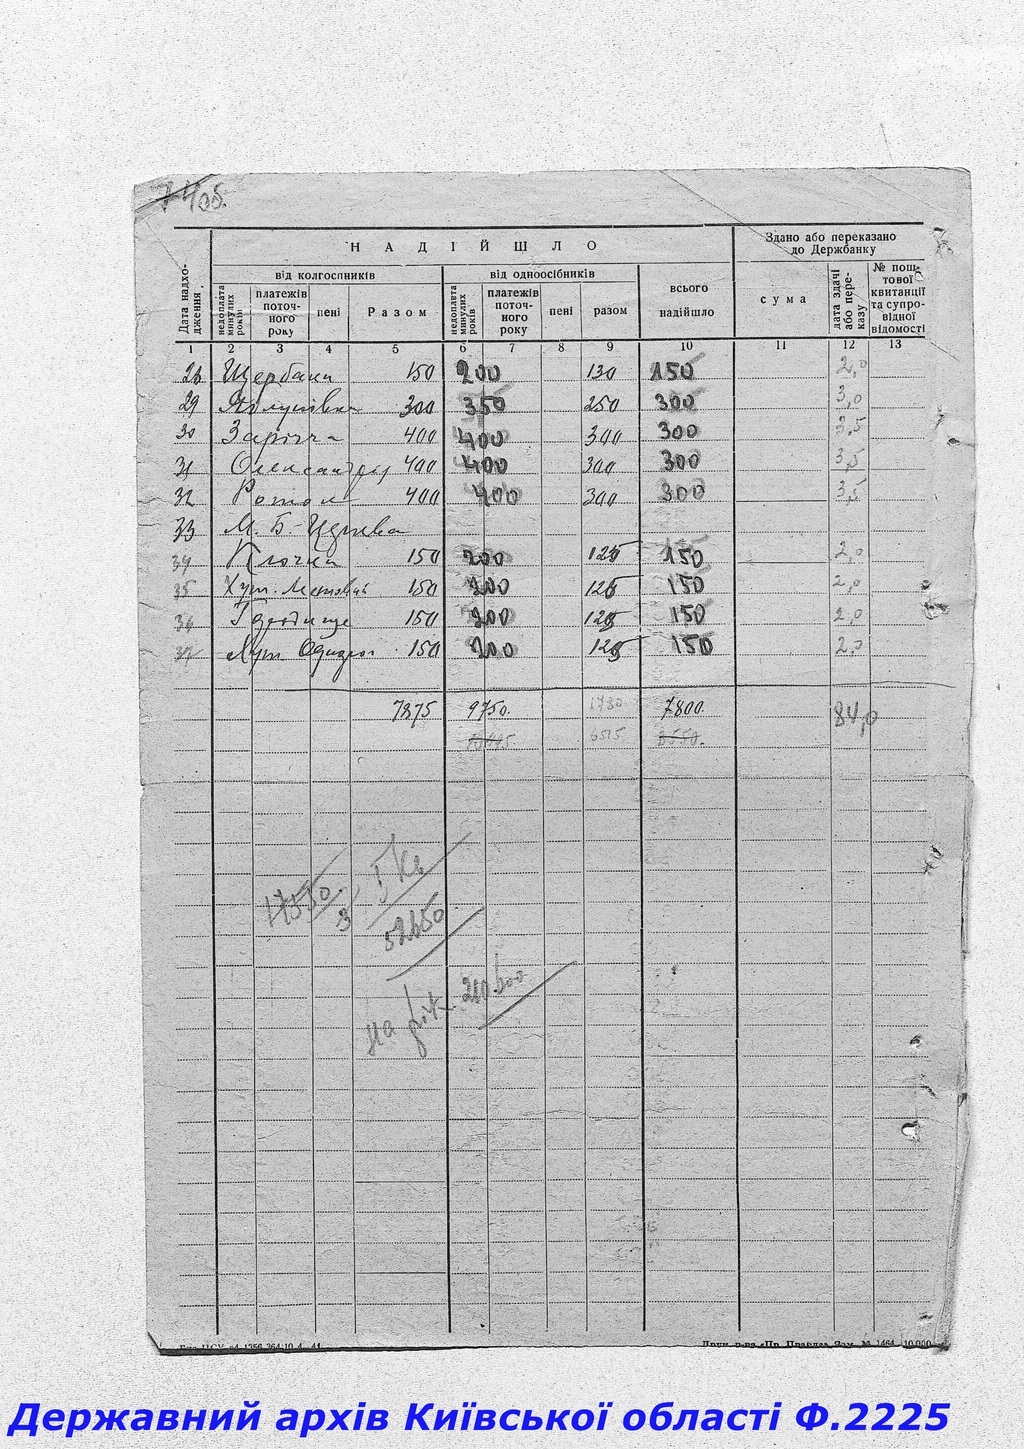 Н А Д І Й Ш Л О
Здано або переказано
до Держбанку
Дата надхо-
дження
від колгоспників
від одноосібників
всього
надійшло
сума
дата здачі
або пере-
казу
№ пош-
тової
квитанції
та супро-
відної
відомості
недоплата
минулих
років
платежів
поточ-
ного
року
пені
Разом
недоплата
минулих
років
платежів
поточ-
ного
року
пені
разом
1 2 3 4 5 6 7 8 9 10 11 12 13
28 150 200 130 150 2,0
29 300 350 250 300 3,0
30 400 400 300 300 3,5
31 400 400 300 300 3,5
32 400 400 300 300 3,5
33 М. Б-Церква
34 Клочки 150 200 125 150 2,0
35 150 200 125 150 2,0
36 Городище 150 200 125 150 2,0
37 150 200 125 150 2,0
7375 9750. 7800. 84,0
6550.
17550. І Кв
3
52650
на рік 210.600
Друк. р-ва
10.000
Державний архів Київської області Ф.2225